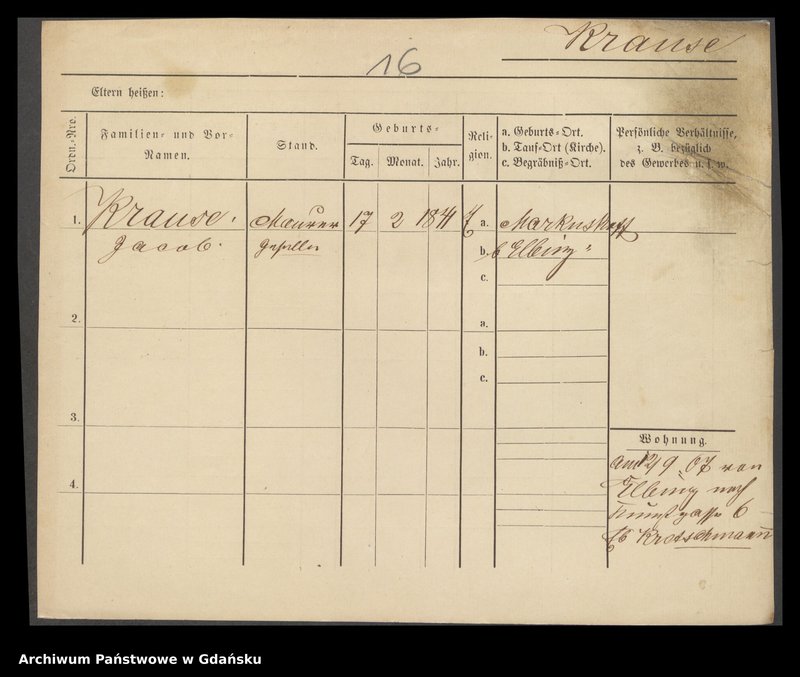 Krause
16
Eltern heißen:
Ordn.-Nro.
Familien- und Vor-
Namen.
Stand.
Geburts-
Tag.
Monat.
Jahr.
Reli-
gion.
a. Geburts-Ort.
b. Tauf-Ort (Kirche).
c. Begräbniß-Ort.
Persönliche Verhältnisse,
z. B. bezüglich
des Gewerbes u. s. w.
1. Krause. Maurer 17 2 1841 a.
Jacob. Geselle b. b Elbing
c.
2. a.
b.
c.
3.
4.
Wohnung.
am 9 07 von
Elbing nach
gasse 6
b Kretschmann
Archiwum Państwowe w Gdańsku